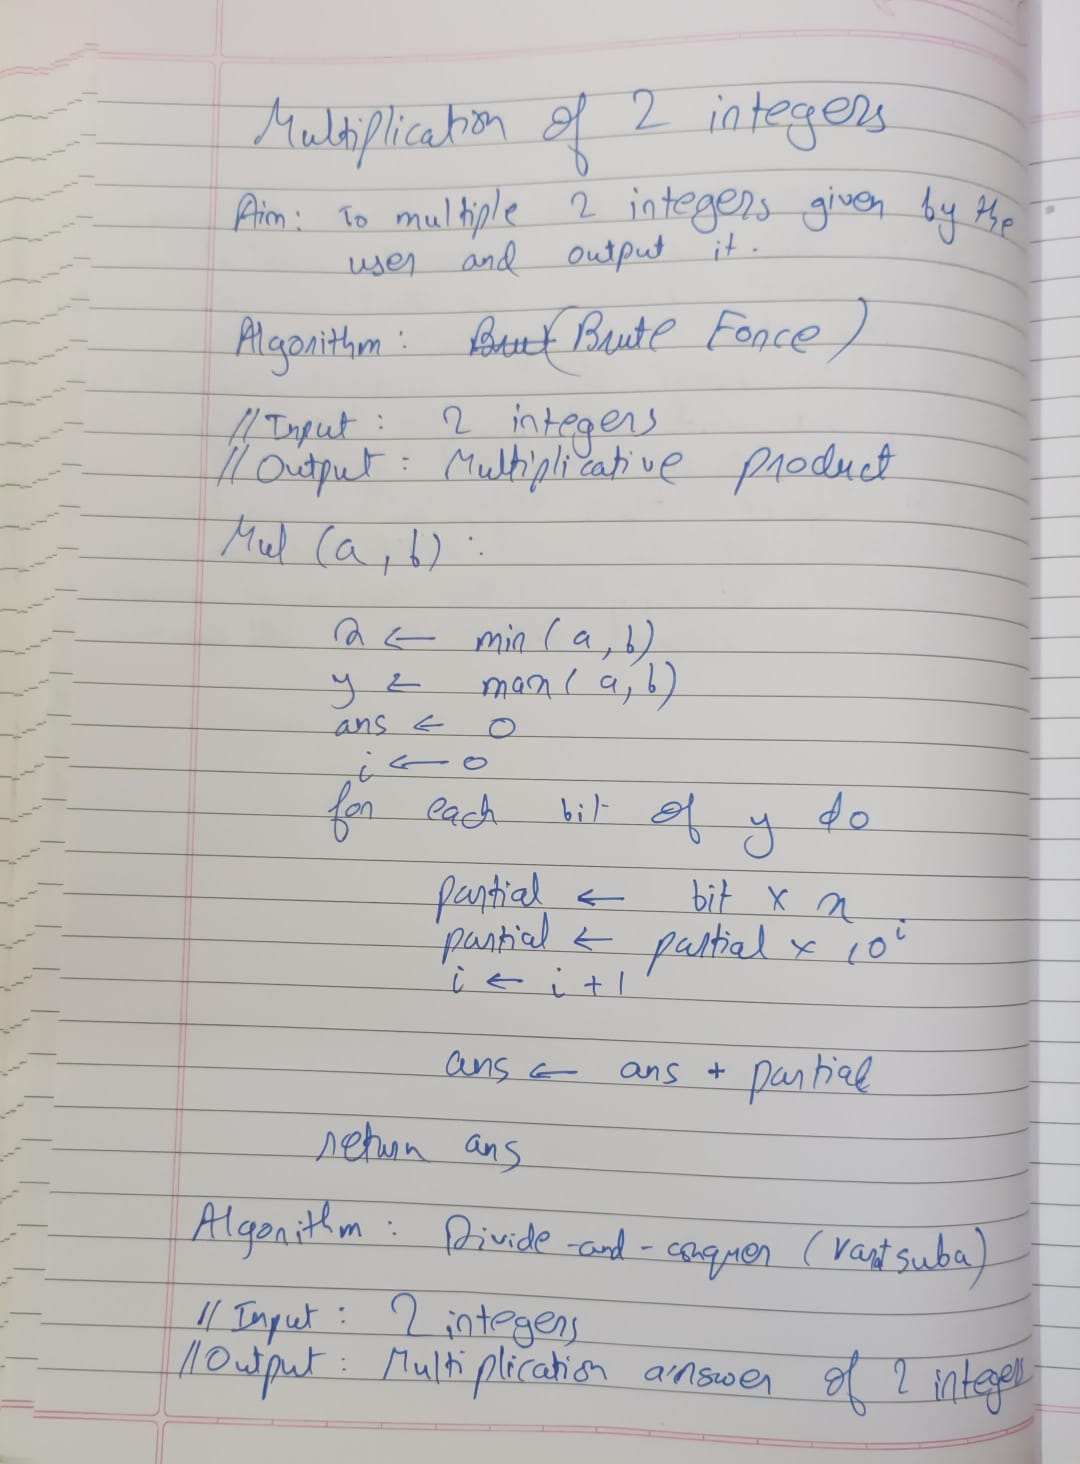 Multiplication of 2 integers
Aim: To multiple 2 integers given by the
user and output it.
Algorithm: (Brute Force)
// Input: 2 integers
// Output: Multiplicative product
Mul (a, b):
x ← min (a, b)
y ← max (a, b)
ans ← 0
i ← 0
for each bit of y do
partial ← bit × x
partial ← partial × 10^i
i ← i + 1
ans ← ans + partial
return ans
Algorithm: Divide-and-conquer (Karatsuba)
// Input: 2 integers
// Output: Multiplication answer of 2 integers